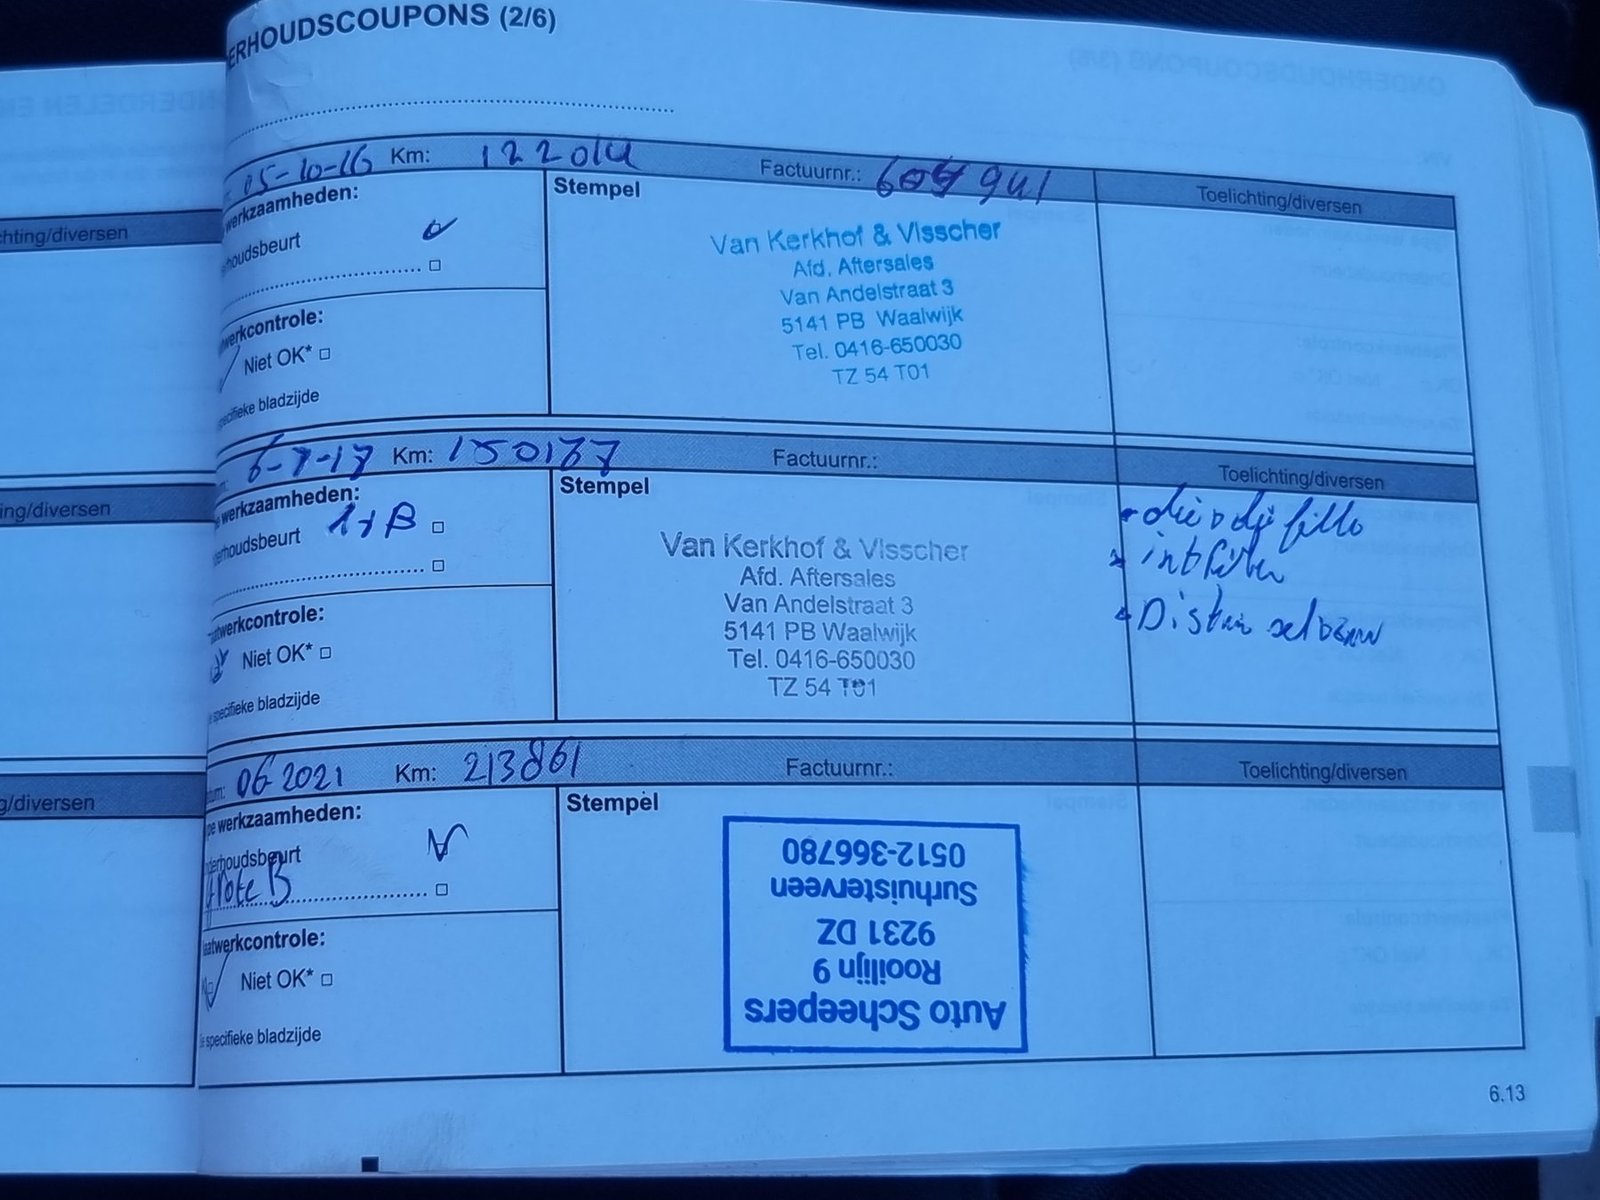 ERHOUDSCOUPONS (2/6)
05-10-16 Km: Factuurnr.: Toelichting/diversen
werkzaamheden: Stempel
houdsbeurt
werkcontrole:
Niet OK*
specifieke bladzijde
Van Kerkhof & Visscher
Afd. Aftersales
Van Andelstraat 3
5141 PB Waalwijk
Tel. 0416-650030
TZ 54 T01
chting/diversen
6-7-17 Km: 150177 Factuurnr.: Toelichting/diversen
e werkzaamheden: Stempel
derhoudsbeurt
twerkcontrole:
Niet OK*
e specifieke bladzijde
Van Kerkhof & Visscher
Afd. Aftersales
Van Andelstraat 3
5141 PB Waalwijk
Tel. 0416-650030
TZ 54 T01
ing/diversen
tum: 06 2021 Km: 213861 Factuurnr.: Toelichting/diversen
pe werkzaamheden: Stempel
nderhoudsbeurt
Grote B
aatwerkcontrole:
Niet OK*
ie specifieke bladzijde
Auto Scheepers
Rooilijn 9
9231 DZ
Surhuisterveen
0512-366780
g/diversen
6.13